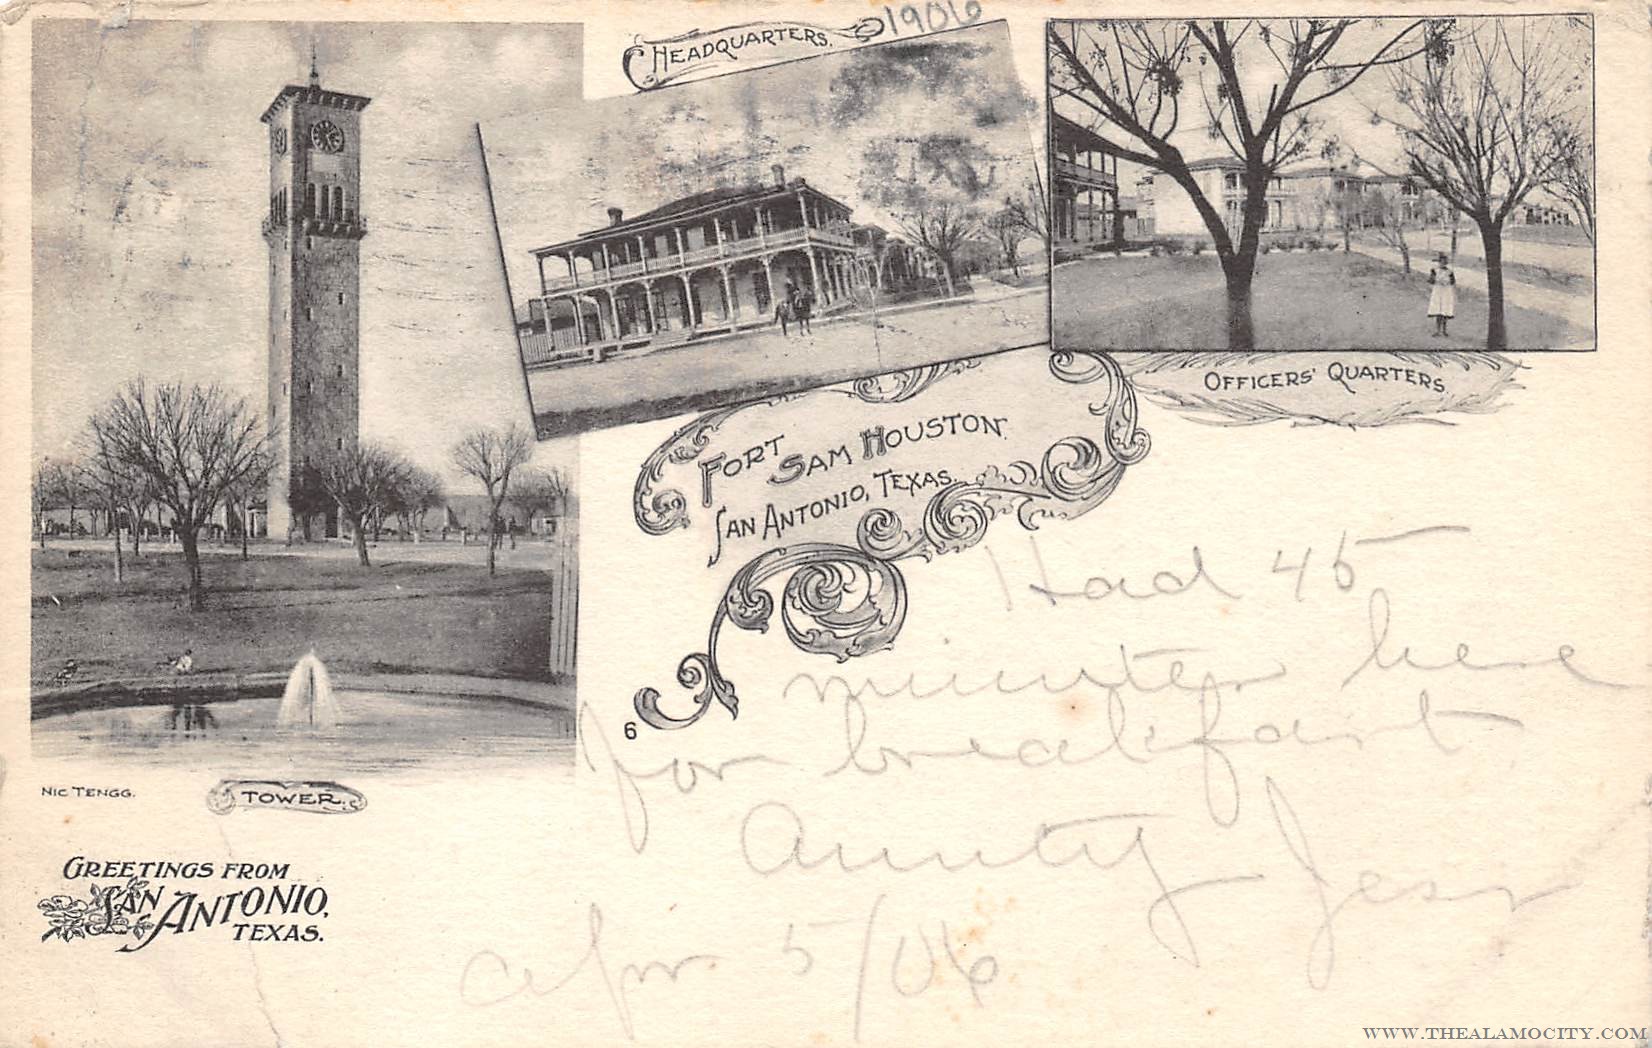 HEADQUARTERS.
1906
OFFICERS' QUARTERS
FORT
SAM HOUSTON.
SAN ANTONIO, TEXAS.
Had 45
minutes here
for breakfast
Aunty Jess
Apr. 5/06
6
NIC TENGG.
TOWER.
GREETINGS FROM
SAN ANTONIO,
TEXAS.
WWW.THEALAMOCITY.COM